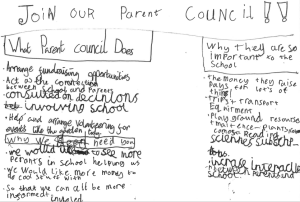 JOIN OUR Parent COUNCIL !!
What Parent council Does
Arrange fundraising opportunities
Act as the connection
between school and Parents
consulted on decintions
involving school
Help and arrange volunteering for
events like the garden
Why we need you
we would like to see more
Perants in school helping us
We would like more money to
do cool stuff with
So that we can all be more
involved
Why they are so
important to the
School
The money they raise
Pays for lots of
things
Trips + transport
Eqipment
Play ground resources
+ maitence - plants
Reading
sciennes subscr
school